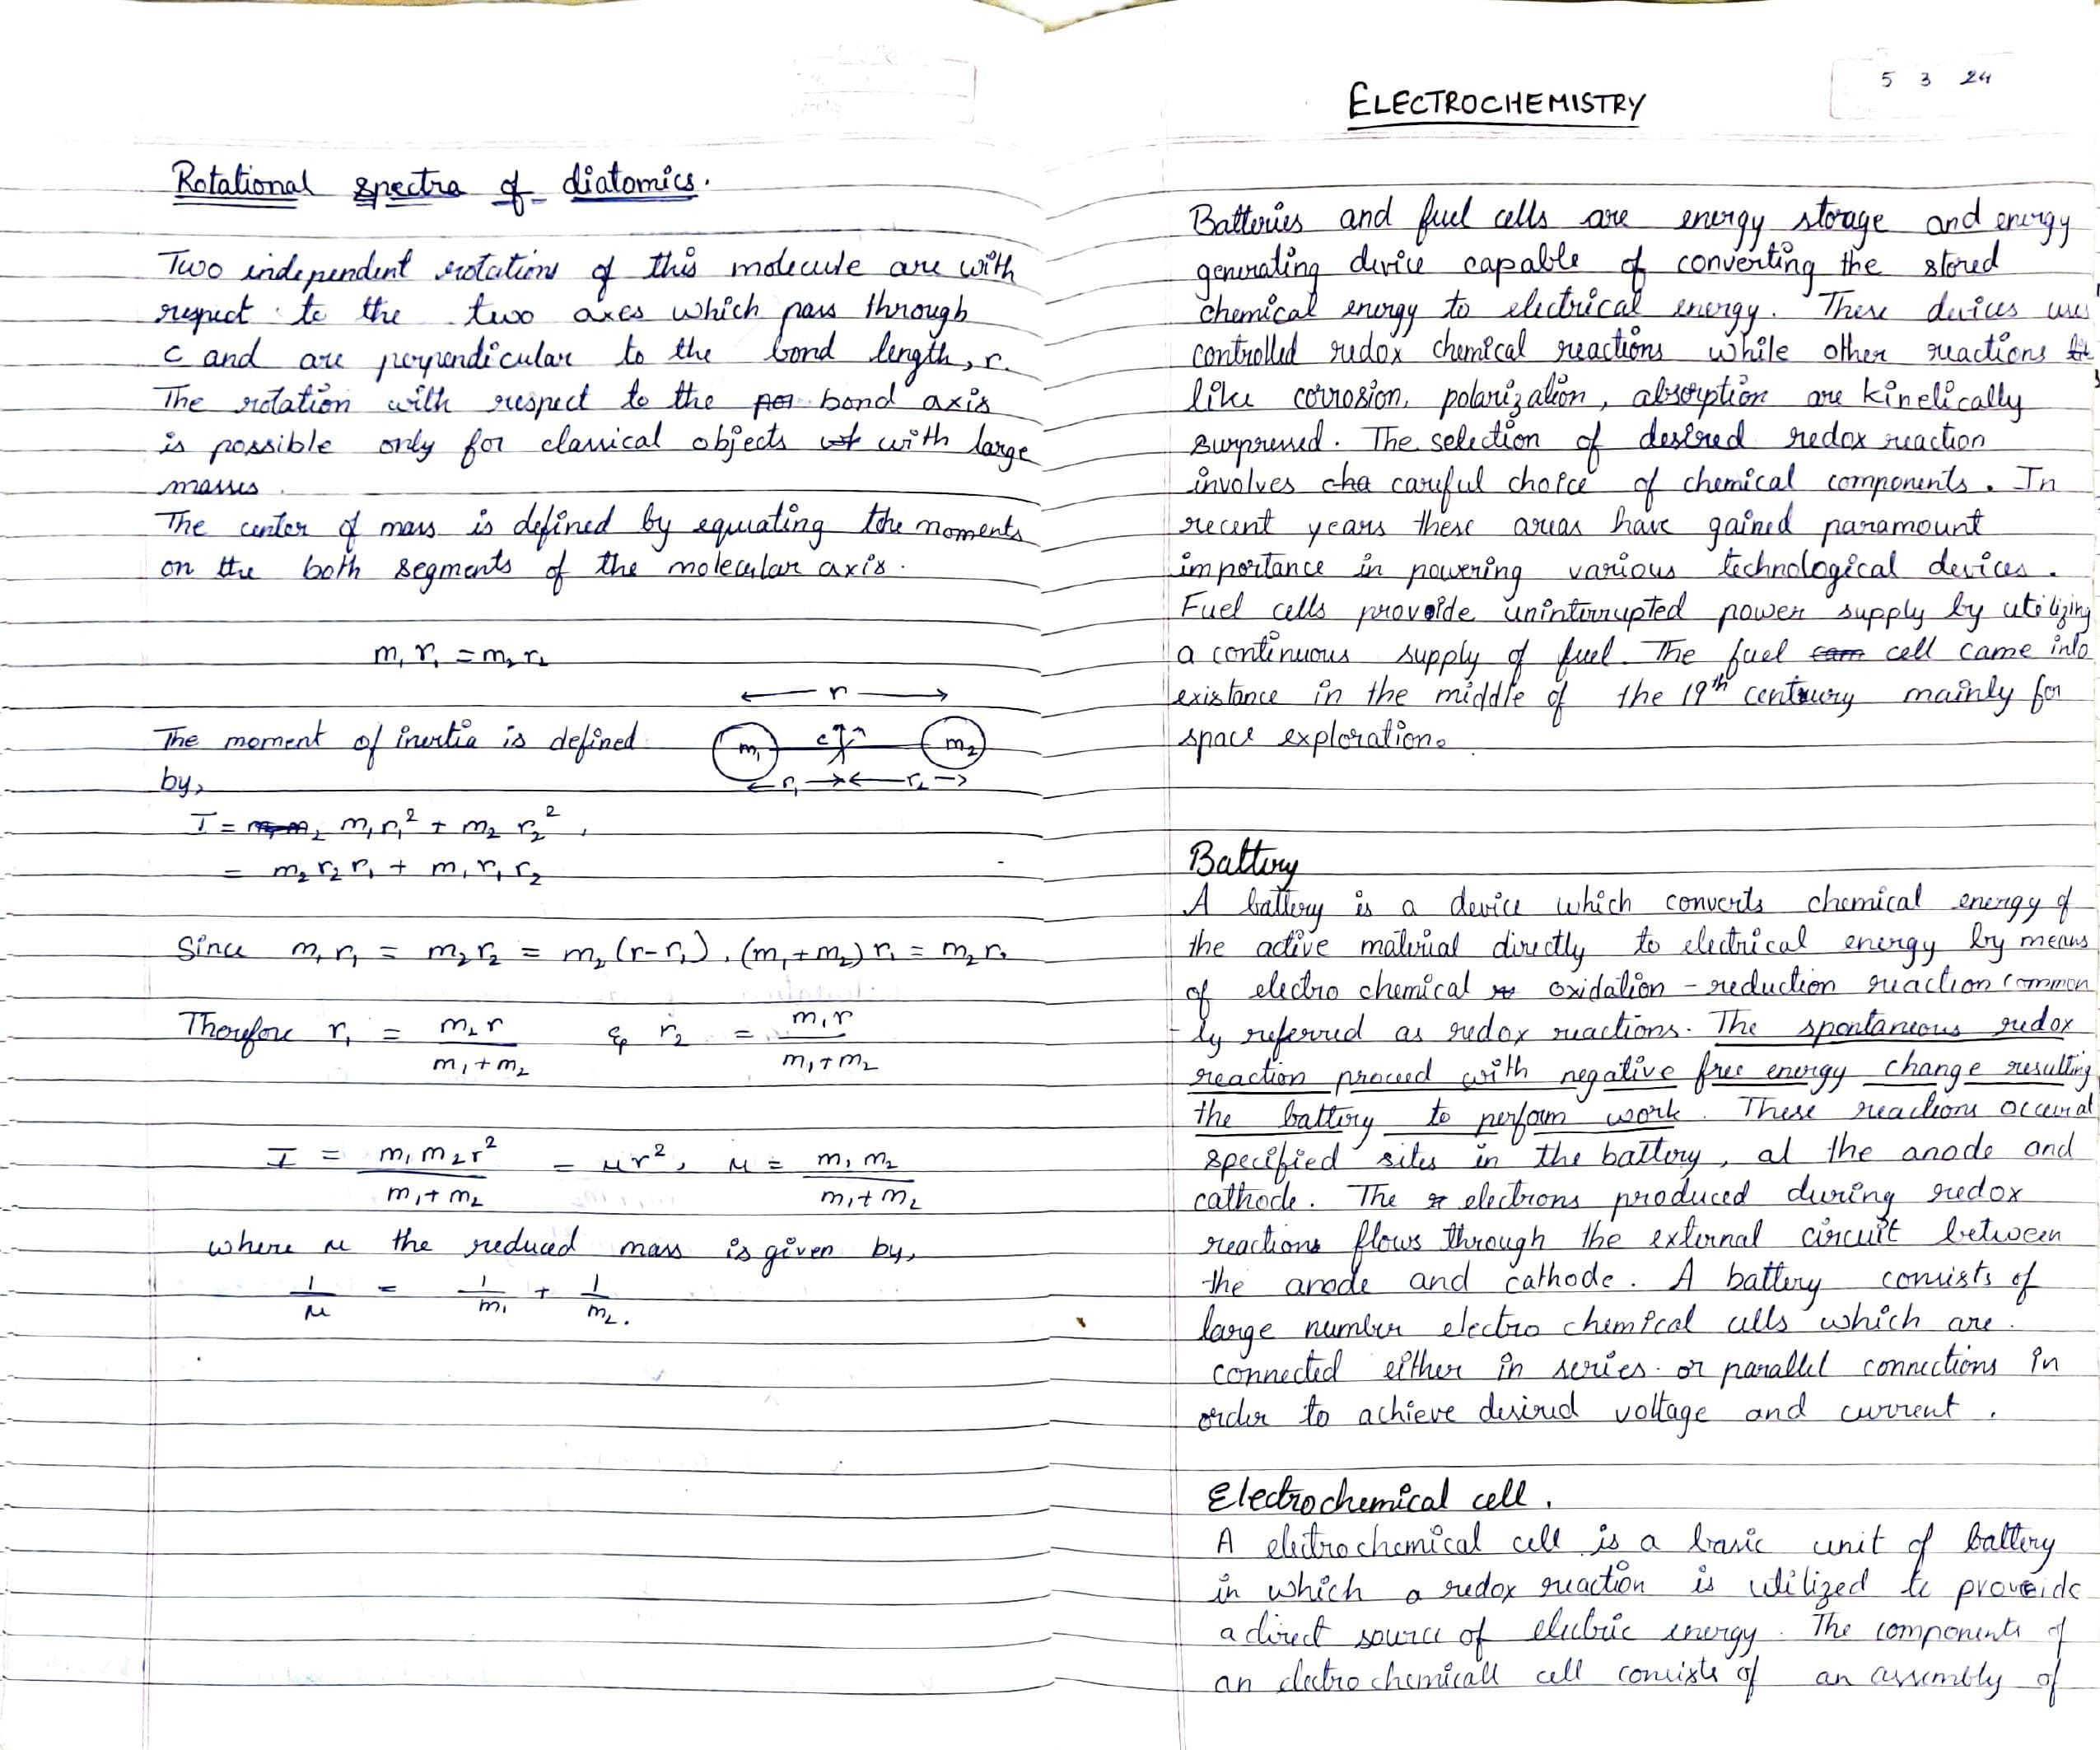 Rotational spectra of diatomics.
Two independent rotations of this molecule are with
respect to the two axes which pass through
C and are perpendicular to the bond length, r.
The rotation with respect to the bond axis
is possible only for classical objects with large
masses.
The center of mass is defined by equating the moments
on the both segments of the molecular axis.
m₁ r₁ = m₂ r₂
r
The moment of inertia is defined
m₁ C m₂
by,
r₁ r₂
I = m₁ r₁² + m₂ r₂²,
= m₂ r₂ r₁ + m₁ r₁ r₂
Since m₁ r₁ = m₂ r₂ = m₂ (r-r₁), (m₁+m₂) r₁ = m₂ r.
Therefore r₁ = m₂ r / m₁ + m₂ & r₂ = m₁ r / m₁ + m₂
I = m₁ m₂ r² / m₁ + m₂ = μr², μ = m₁ m₂ / m₁ + m₂
where μ the reduced mass is given by,
1/μ = 1/m₁ + 1/m₂.
5 3 24
ELECTROCHEMISTRY
Batteries and fuel cells are energy storage and energy
generating device capable of converting the stored
chemical energy to electrical energy. These devices uses
controlled redox chemical reactions while other reactions
like corrosion, polarization, absorption are kinetically
surpressed. The selection of desired redox reaction
involves careful choice of chemical components. In
recent years these areas have gained paramount
importance in powering various technological devices.
Fuel cells provide uninterrupted power supply by utilizing
a continuous supply of fuel. The fuel cell came into
existance in the middle of the 19th century mainly for
space exploration.
Battery
A battery is a device which converts chemical energy of
the active material directly to electrical energy by means
of electro chemical oxidation - reduction reaction common
- ly referred as redox reactions. The spontaneous redox
reaction proceed with negative free energy change resulting
the battery to perform work. These reactions occur at
specified sites in the battery, at the anode and
cathode. The electrons produced during redox
reactions flows through the external circuit between
the anode and cathode. A battery consists of
large number electro chemical cells which are
connected either in series or parallel connections in
order to achieve desired voltage and current.
Electrochemical cell.
A electrochemical cell is a basic unit of battery
in which a redox reaction is utilized to provide
a direct source of electric energy. The components of
an electro chemicall cell consists of an assembly of